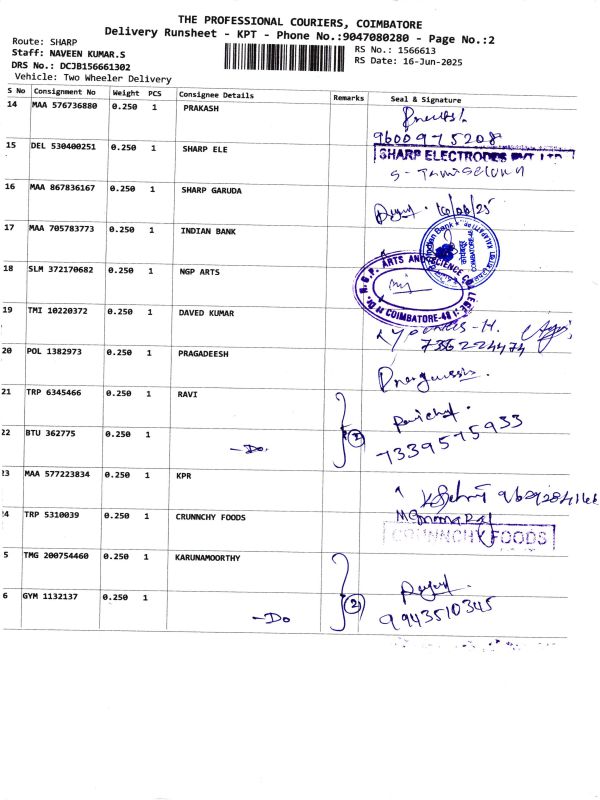 THE PROFESSIONAL COURIERS, COIMBATORE
Delivery Runsheet - KPT - Phone No.:9047080280 - Page No.:2
Route: SHARP
RS No.: 1566613
Staff: NAVEEN KUMAR.S
RS Date: 16-Jun-2025
DRS No.: DCJB156661302
Vehicle: Two Wheeler Delivery
S No Consignment No Weight PCS Consignee Details Remarks Seal & Signature
14 MAA 576736880 0.250 1 PRAKASH
9600975208
15 DEL 530400251 0.250 1 SHARP ELE
SHARP ELECTRODES PVT LTD
16 MAA 867836167 0.250 1 SHARP GARUDA
16/06/25
17 MAA 705783773 0.250 1 INDIAN BANK
Indian Bank
COIMBATORE-48
18 SLM 372170682 0.250 1 NGP ARTS
Dr. N.G.P. ARTS AND SCIENCE COLLEGE
COIMBATORE-48
19 TMI 10220372 0.250 1 DAVED KUMAR
736224474
20 POL 1382973 0.250 1 PRAGADEESH
21 TRP 6345466 0.250 1 RAVI
7339575933
22 BTU 362775 0.250 1 -Do. 2
23 MAA 577223834 0.250 1 KPR
24 TRP 5310039 0.250 1 CRUNNCHY FOODS
CRUNNCHY FOODS
5 TMG 200754460 0.250 1 KARUNAMOORTHY
9943510345
6 GYM 1132137 0.250 1 -Do 2